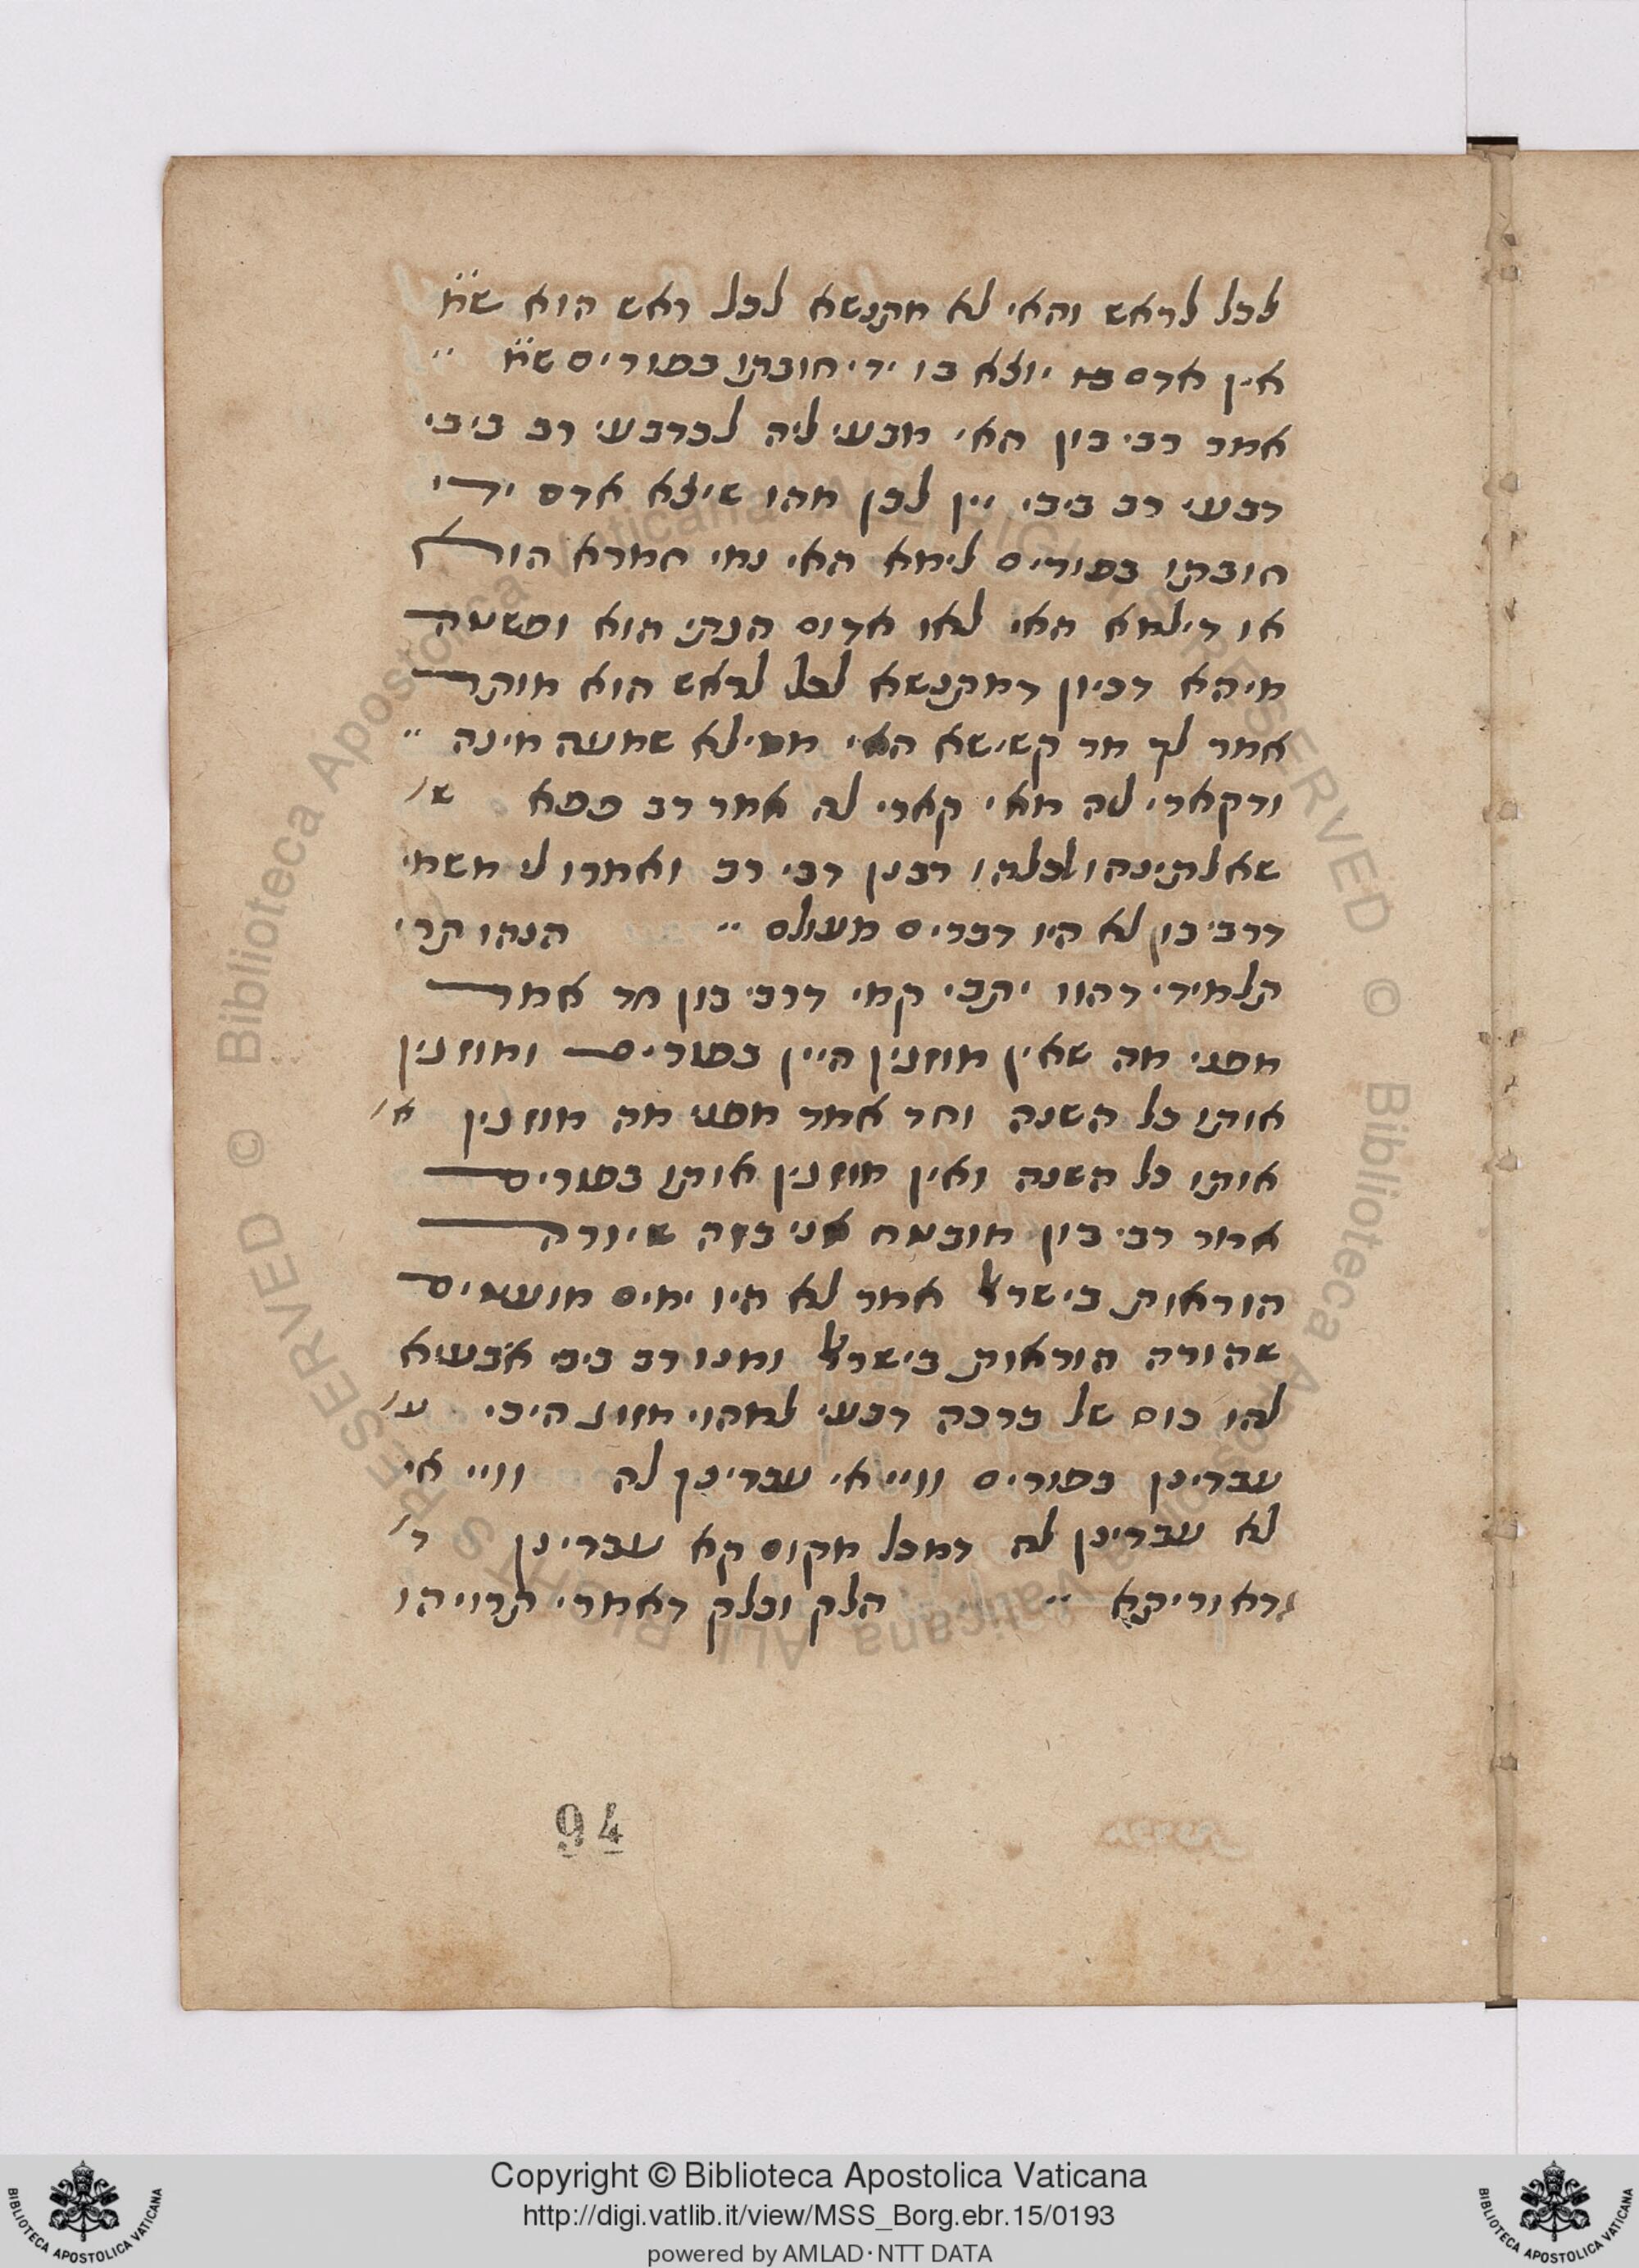 לכל לראש והאי לא מקנשא לכל ראש הוא ש̈מ̈
אין אדם יוצא בו ידי חובתו בפורים ש̈מ̈
אמר רבי בון האי מבעי ליה לכדבעי רב ביבי
דבעי רב ביבי יין לבן מהו שיצא אדם ידי
חובתו בפורים לימא האי נמי חמרא הוא
או דילמא האי לאו אדום הנקי הוא ופשטה
מיהא דכיון דמקנשא לכל לראש הוא מותר
אמר לך מר קשישא האי ממילא שמעה מינה
ודקארי לה מאי קארי לה אמר רב פפא ש׳
שאלתינהו לכלהו רבנן דבי רב ואמרו לי משמי
דרבי בון לא היו דברים מעולם הנהו תרי
תלמידי דהוו יתבי קמי דרבי בון חד אמר
מפני מה שאין מוזגין היין בפורים ומוזגין
אותו כל השנה וחד אמר מפני מה מוזגין א׳
אותו כל השנה ואין מוזגין אותו בפורים
אמר רבי בון מובטח אני בזה שיורה
הוראות בישראל אמר לא היו ימים מועטים
שהורה הוראות בישראל ומנו רב ביבי אבעיא
להו כוס של ברכה דבעי למהוי מזוג היכי ע׳
עבדינן בפורים וויי אי עבדינן לה וויי אי
לא עבדינן לה דמכל מקום קא עבדינן ד׳
דאוריתא הלק ובלק דאמרי תרוייהו
94
Copyright © Biblioteca Apostolica Vaticana
http://digi.vatlib.it/view/MSS_Borg.ebr.15/0193
powered by AMLAD·NTT DATA